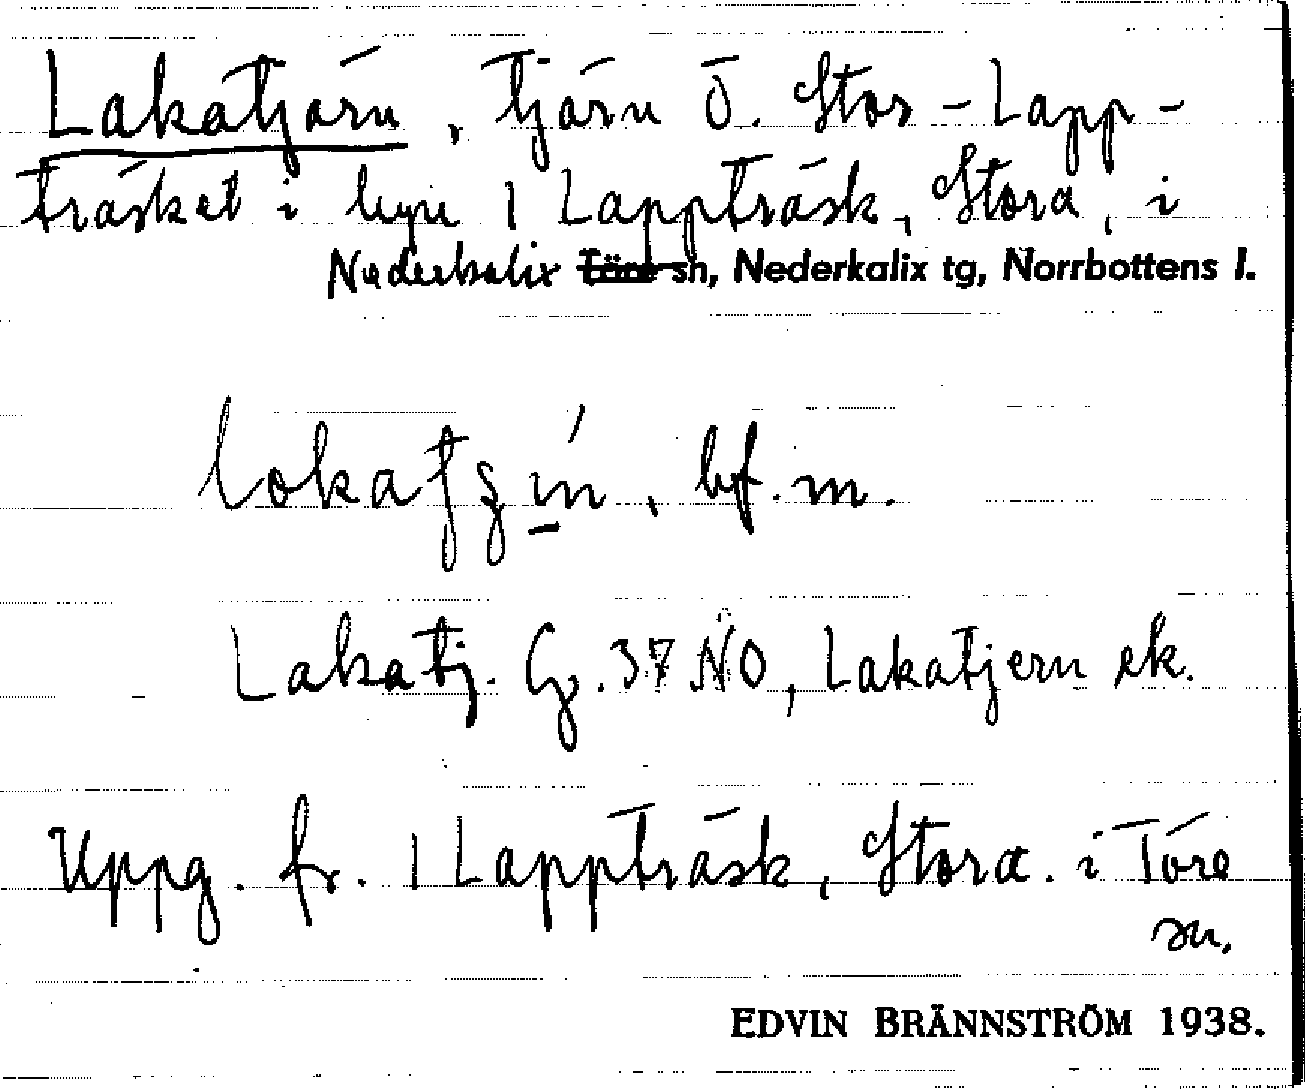 Lakatjärn, tjärn Ö. Stor-Lapp-
träsket i byn 1 Lappträsk, Stora, i
Nederkalix Töre sn, Nederkalix tg, Norrbottens l.
bf. m.
Lakatj. G. 37 NO, Lakatjern ek.
Uppg. fr. 1 Lappträsk, Stora. i Töre
sn.
EDVIN BRÄNNSTRÖM 1938.